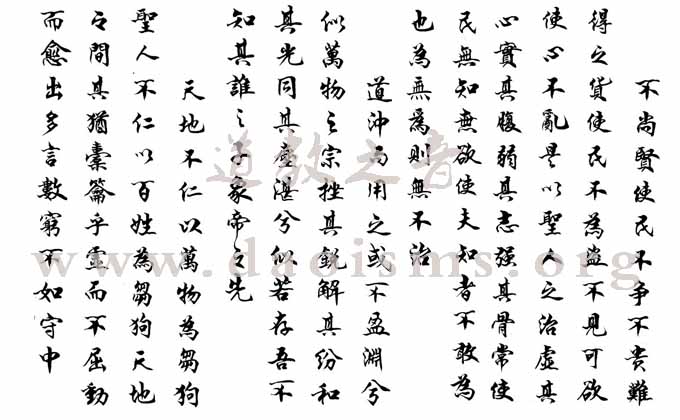 不尚賢使民不争不贵難
得之貨使民不為盗不見可欲
使心不亂是以聖人之治虚其
心實其腹弱其志强其骨常使
民無知無欲使夫知者不敢為
也為無為則無不治
道沖而用之或不盈淵兮
似萬物之宗挫其銳解其紛和
其光同其塵湛兮似若存吾不
知其誰之子象帝之先
天地不仁以萬物為芻狗
聖人不仁以百姓為芻狗天地
之間其猶橐籥乎虚而不屈動
而愈出多言數窮不如守中
道教之音
www.daoisms.org